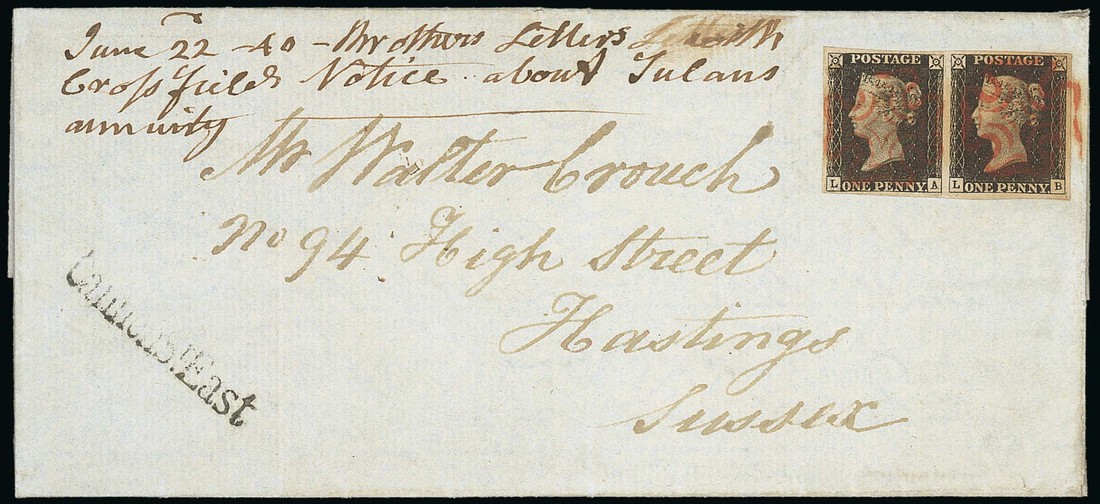 June 22 - 40 - Brothers Letters with
Crossfields Notice about Sulans
annuity
Mr Walter Crouch
No 94 High Street
Hastings
Sussex
POSTAGE
ONE PENNY
L A
POSTAGE
ONE PENNY
L B
East